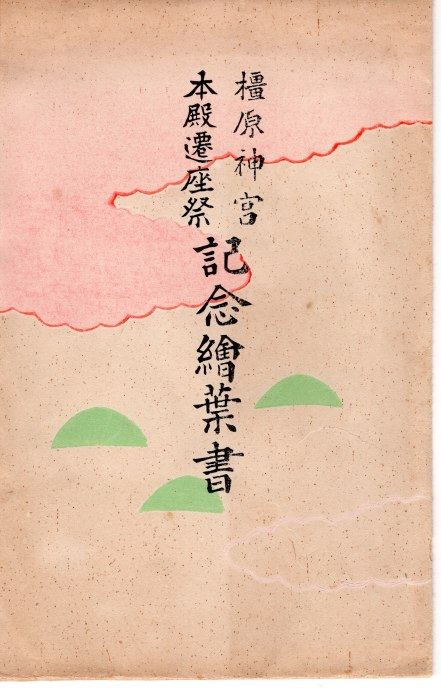 橿原神宮
本殿遷座祭
記念繪葉書